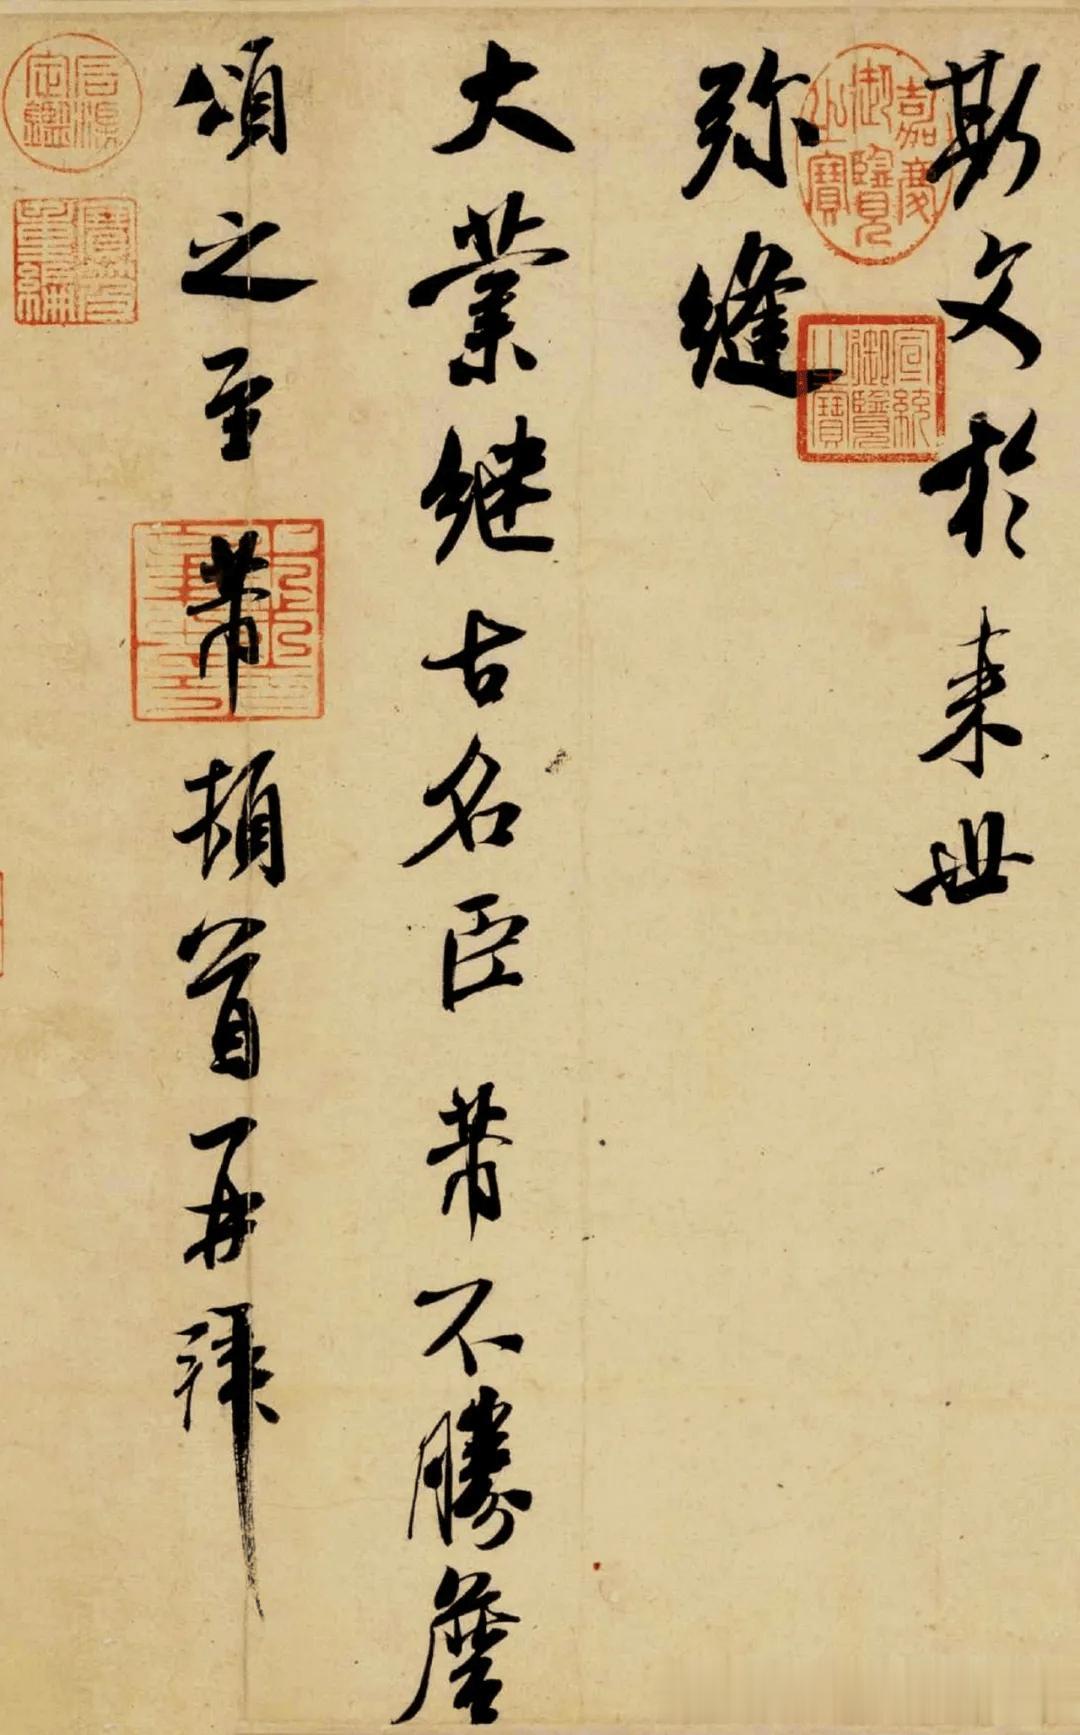 斯文於来世
弥縫
大業継古名臣芾不勝詹
頌之至芾頓首再拜
嘉慶御覽之寶
宣統御覽之寶
石渠定鑑
寶笈重編